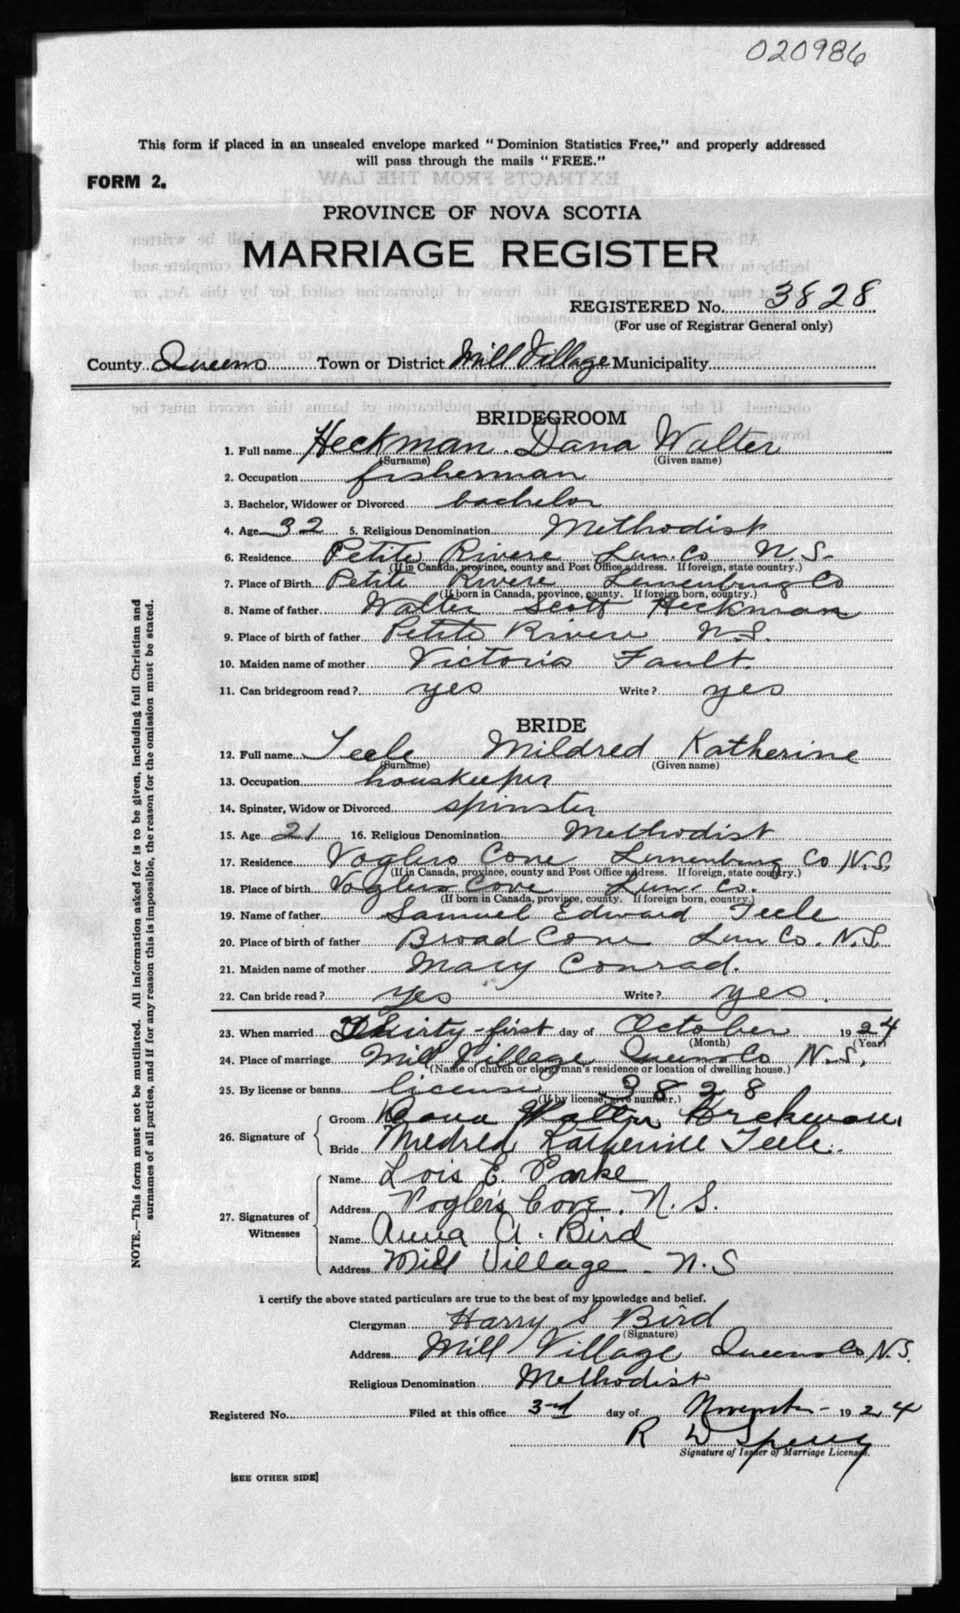 020986
This form if placed in an unsealed envelope marked "Dominion Statistics Free," and properly addressed
will pass through the mails "FREE."
FORM 2.
PROVINCE OF NOVA SCOTIA
MARRIAGE REGISTER
REGISTERED No. 3828
(For use of Registrar General only)
County Queens Town or District Mill Village Municipality
BRIDEGROOM
1. Full name Heckman. Dana Walter
(Surname) (Given name)
2. Occupation fisherman
3. Bachelor, Widower or Divorced bachelor
4. Age 32 5. Religious Denomination Methodist
6. Residence Petite Rivere Lun. Co N.S.
(If in Canada, province, county and Post Office address. If foreign, state country.)
7. Place of Birth Petite Rivere Lunenburg Co
(If born in Canada, province, county. If foreign born, country.)
8. Name of father Walter Scott Heckman
9. Place of birth of father Petite Rivere N.S.
10. Maiden name of mother Victoria Fault.
11. Can bridegroom read? yes Write? yes
BRIDE
12. Full name Teele Mildred Katherine
(Surname) (Given name)
13. Occupation houskeeper
14. Spinster, Widow or Divorced spinster
15. Age 21 16. Religious Denomination Methodist
17. Residence Voglers Cove Lunenburg Co N.S.
(If in Canada, province, county and Post Office address. If foreign, state country.)
18. Place of birth Voglers Cove Lun. Co.
(If born in Canada, province, county. If foreign born, country.)
19. Name of father Samuel Edward Teele
20. Place of birth of father Broad Cove Lun Co. N.S.
21. Maiden name of mother Mary Conrad.
22. Can bride read? yes Write? yes.
23. When married Thirty-first day of October 1924
(Month) (Year)
24. Place of marriage Mill Village Queens Co N.S.
(Name of church or clergyman's residence or location of dwelling house.)
25. By license or banns license 3828
(If by license, give number.)
26. Signature of
Groom Dana Walter Heckman.
Bride Mildred Katherine Teele.
27. Signatures of Witnesses
Name Lois E. Parke
Address Vogler's Cove. N.S.
Name Anna A. Bird
Address Mill Village. N.S
I certify the above stated particulars are true to the best of my knowledge and belief.
Clergyman Harry S Bird
(Signature)
Address Mill Village Queens Co N.S.
Religious Denomination Methodist
Registered No. Filed at this office 3rd day of November 1924
R W Sperry
Signature of Issuer of Marriage Licenses.
[SEE OTHER SIDE]
NOTE.—This form must not be mutilated. All information asked for is to be given, including full Christian and
surnames of all parties, and if for any reason this is impossible, the reason for the omission must be stated.